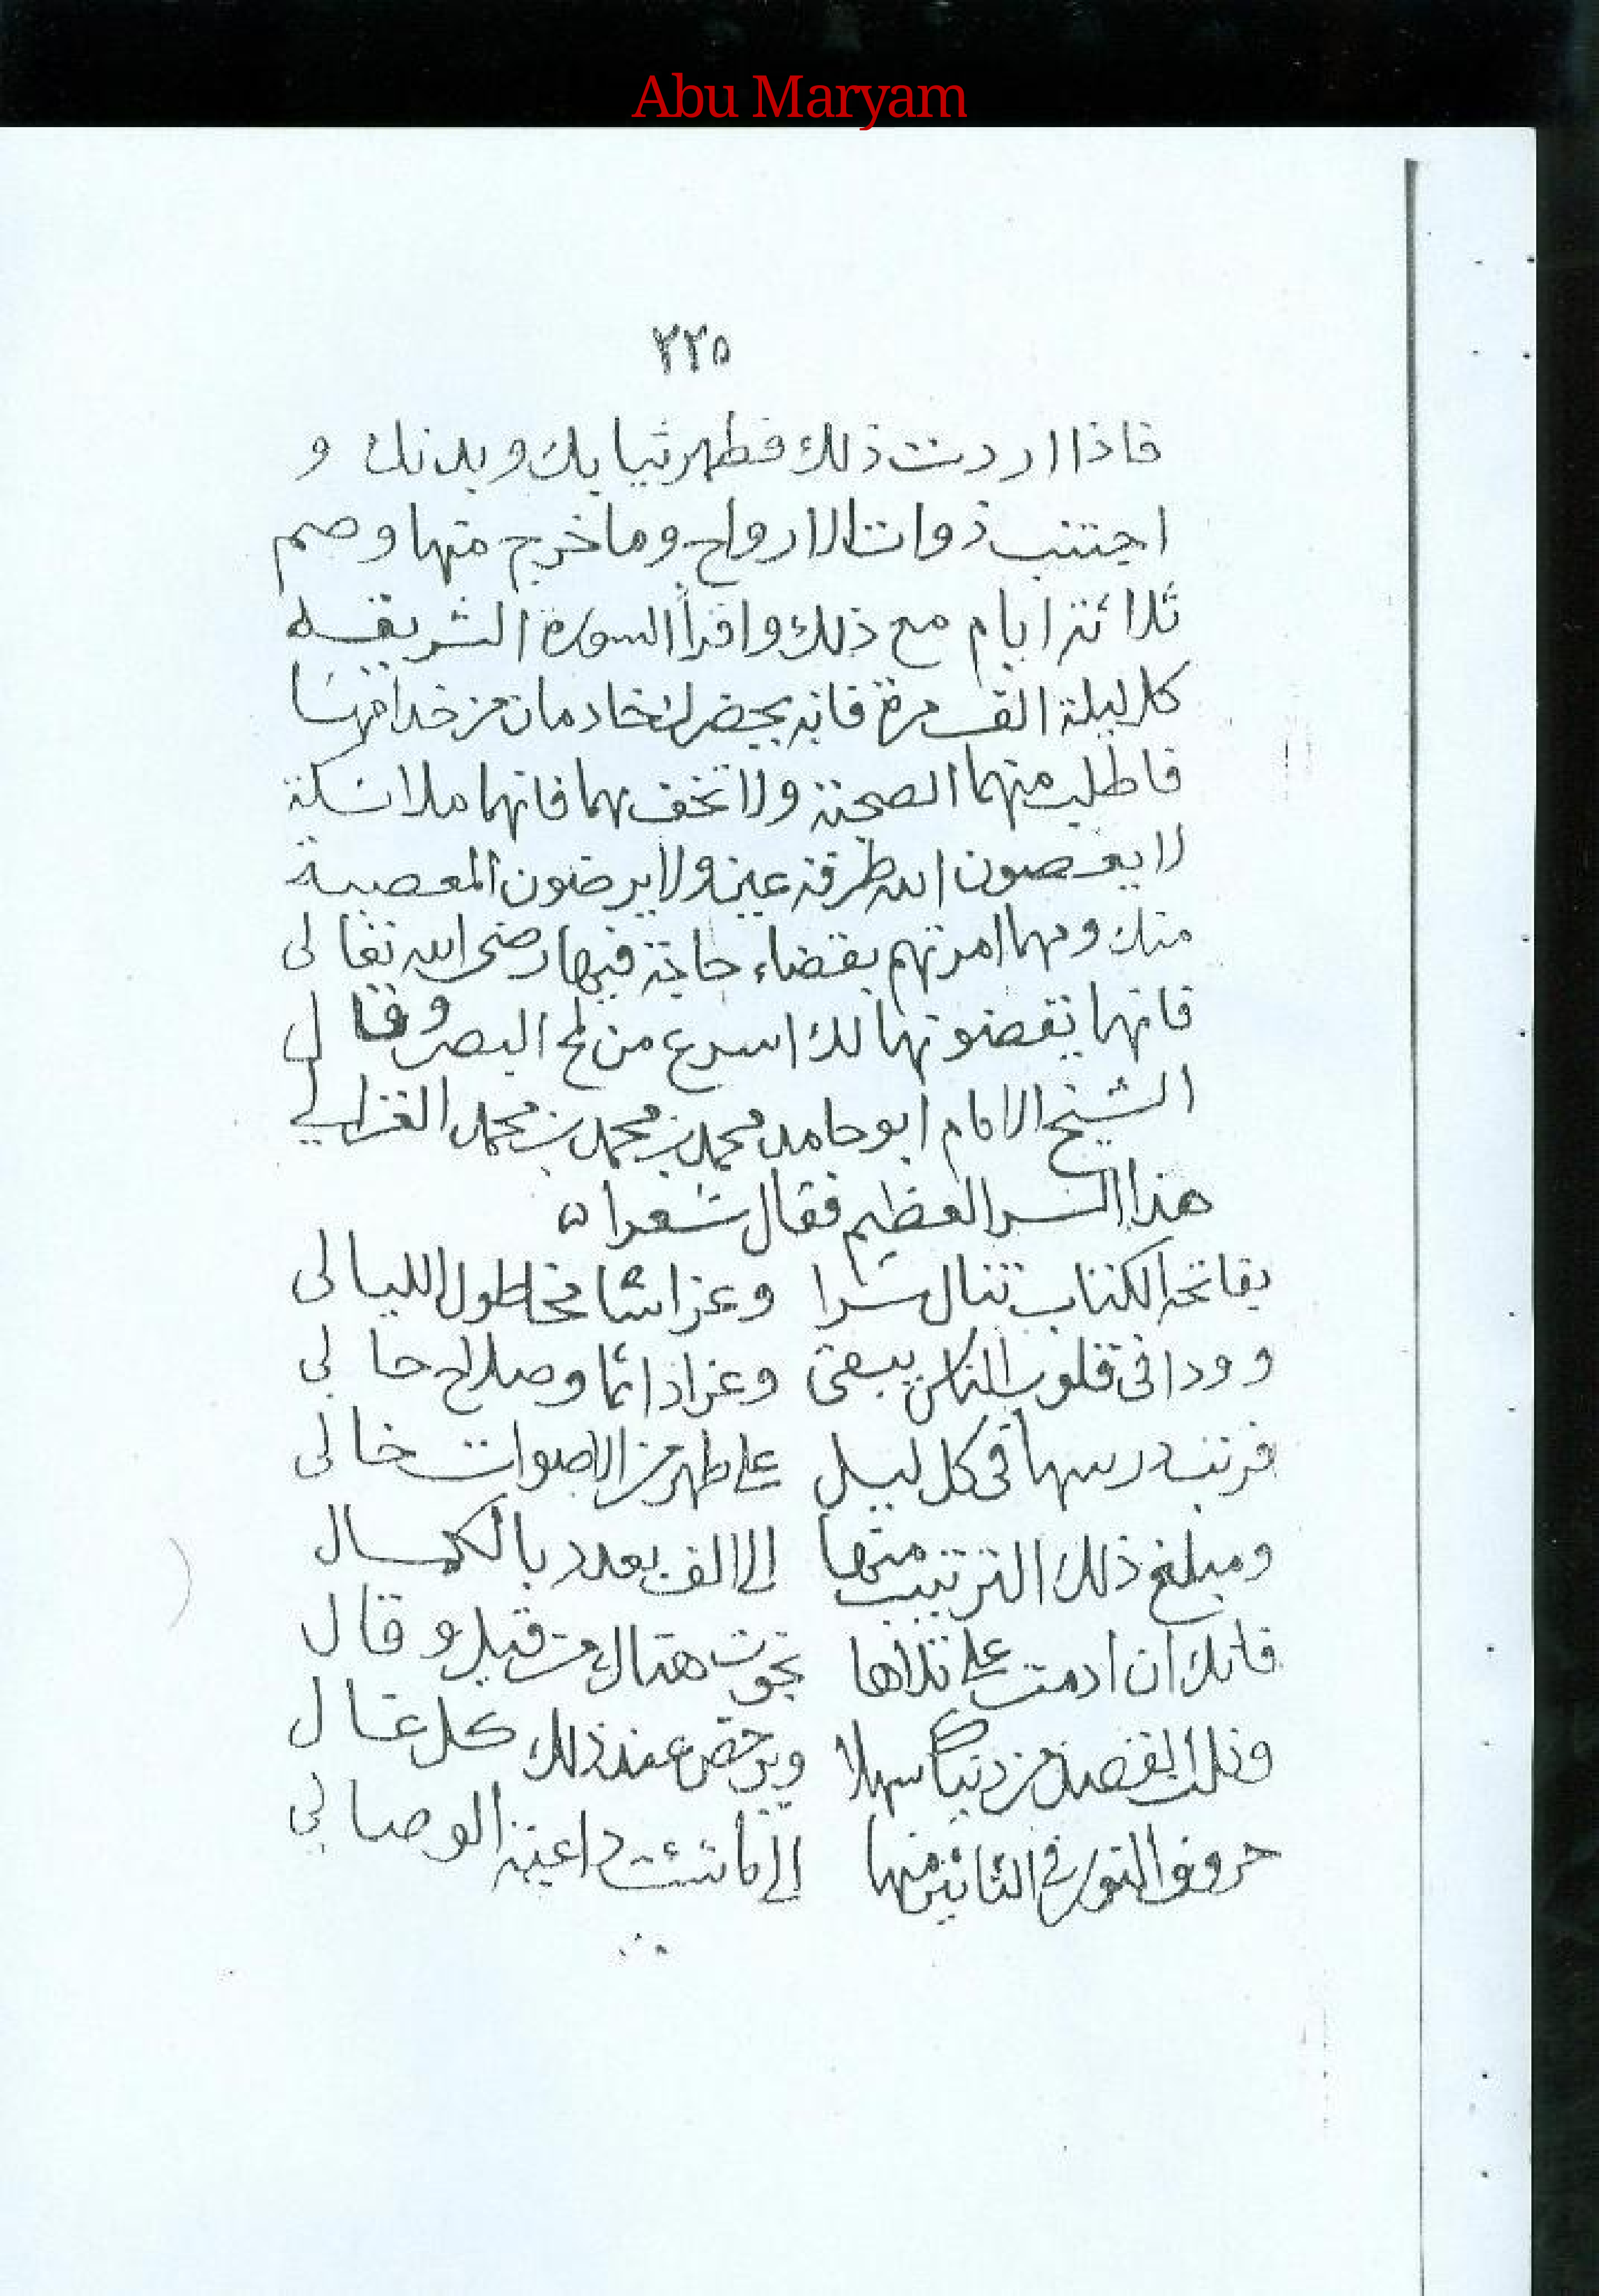 Abu Maryam
٢٢٥
فاذا اردت ذلك فطهر ثيابك وبدنك و
اجتنب ذوات الارواح وما خرج منها وصم
ثلاثة ايام مع ذلك واقرأ السورة الشريفه
كل ليلة الف مرة فانه يحضر لك خادمان من خدامها
فاطلب منهما الصحبة ولا تخف بهما فانهما ملائكة
لا يعصون الله طرفة عين ولا يرضون المعصية
منك ومهما امرتهم بقضاء حاجة فيها رضى الله تعالى
فانهما يقضونها لك اسرع من لمح البصر وقال
الشيخ الامام ابو حامد محمد بن محمد بن محمد الغزالي
هذا السر العظيم فقال شعرا ه
بفاتحة الكتاب تنال سرا وعزا شامخا طول الليالى
وودا فى قلوب الناس يبقى وعزا دائما وصلاح حالي
فرتب درسها فى كل ليل على طهر من الاصوات خالى
ومبلغ ذلك الترتيب منها الى الف بعدد بالكمال
فانك ان ادمت على تلاها نجوت هناك من قيل وقال
ونلت القصد من دنياك سهلا ويرخص عند ذلك كل غال
حروف النور فى الثانين منها الى ما شئت داعية الوصالي